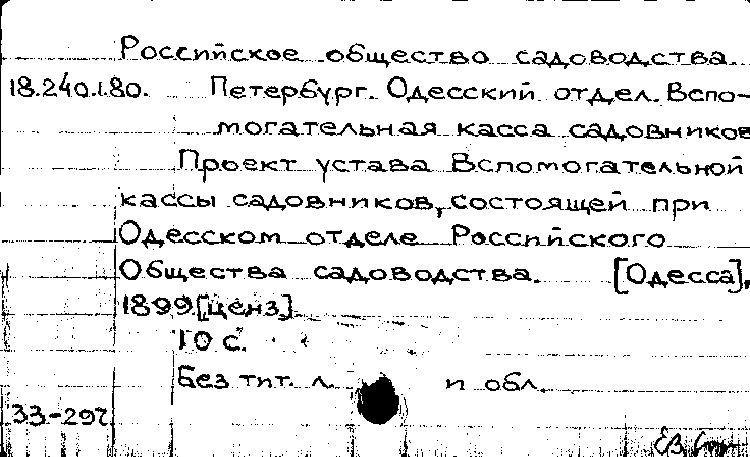 Российское общество садоводства.
18.240.1.80. Петербург. Одесский отдел. Вспо-
могательная касса садовников
Проект устава Вспомогательной
кассы садовников, состоящей при
Одесском отделе Российского
Общества садоводства. [Одесса],
1899 [ценз.]
10 с.
Без тит. л. и обл.
33-297